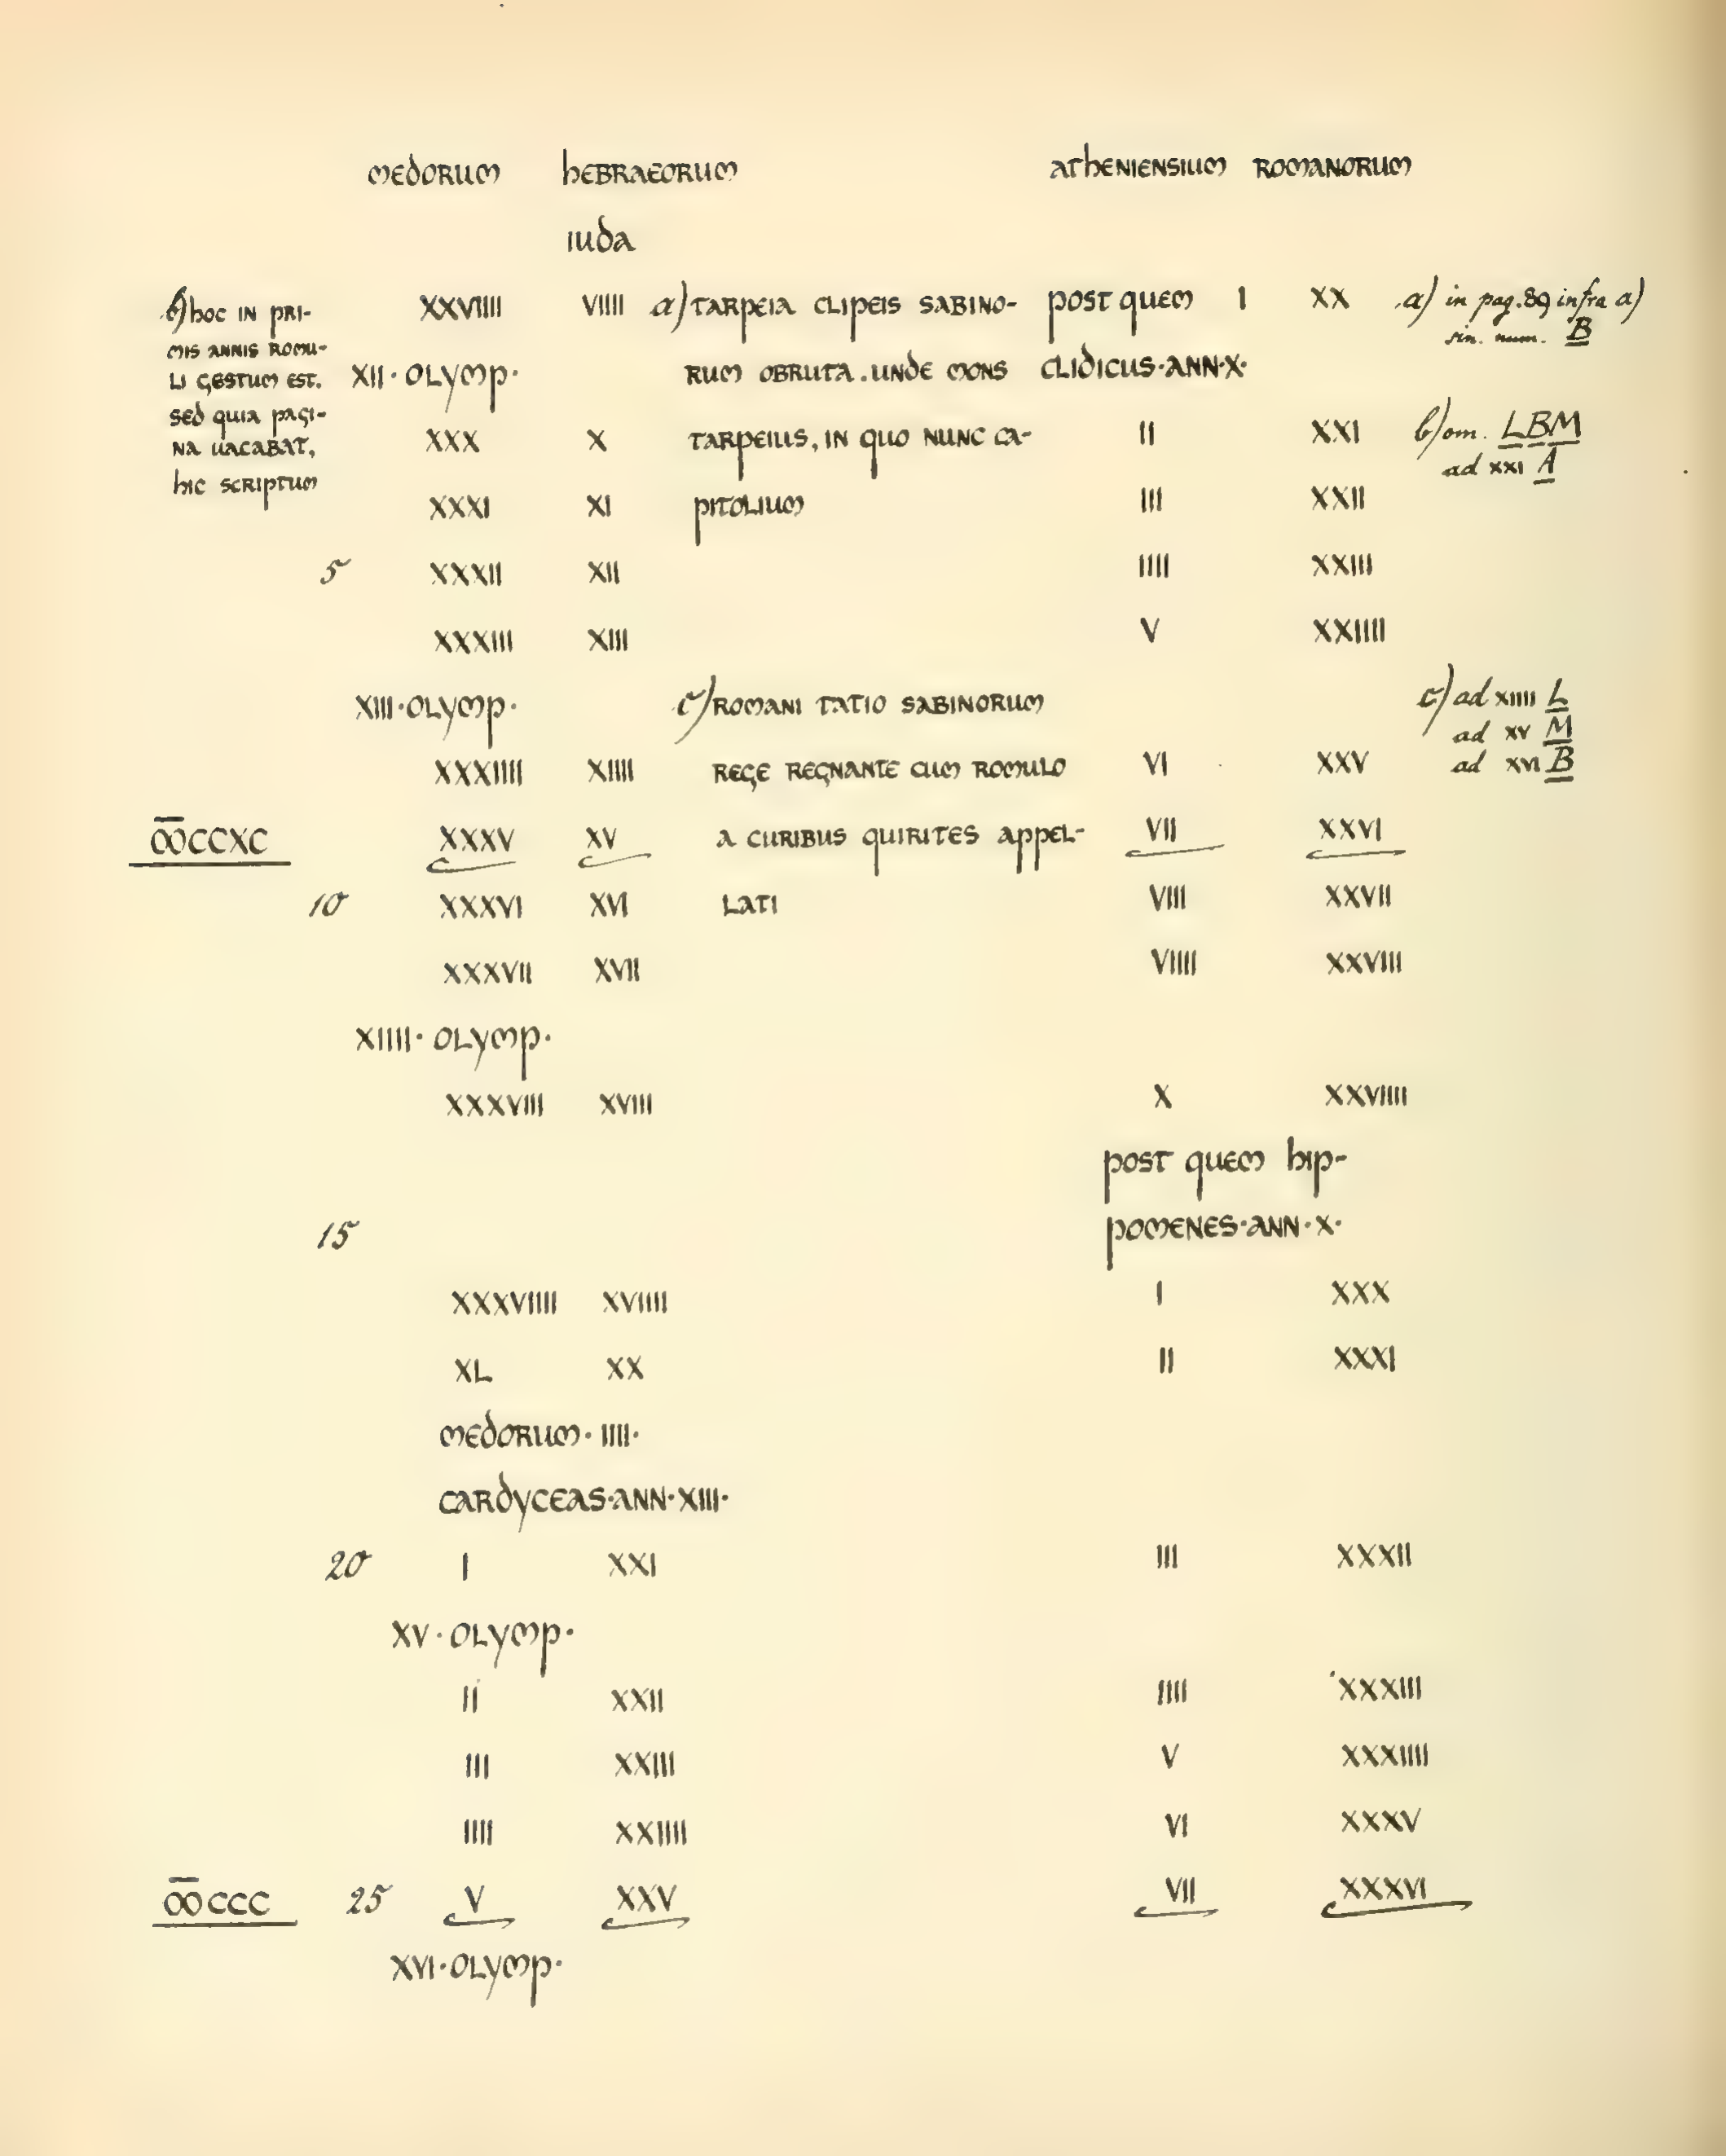 MEDORUM HEBRAEORUM ATHENIENSIUM ROMANORUM
IUDA
b) HOC IN PRI- XXVIIII VIIII a) TARPEIA CLIPEIS SABINO- POST QUEM I XX a) in pag. 89 infra a)
sin. num. B
MIS ANNIS ROMU-
LI GESTUM EST. XII · OLYMP · RUM OBRUTA . UNDE MONS CLIDICUS · ANN · X ·
SED QUIA PAGI-
NA UACABAT, XXX X TARPEIUS, IN QUO NUNC CA- II XXI b) om. LBM
ad XXI A
HIC SCRIPTUM XXXI XI PITOLIUM III XXII
5 XXXII XII IIII XXIII
XXXIII XIII V XXIIII
XIII · OLYMP · c) ROMANI TATIO SABINORUM c) ad XIIII L
ad XV M
XXXIIII XIIII REGE REGNANTE CUM ROMULO VI XXV ad XVI B
ꝎCCXC XXXV XV A CURIBUS QUIRITES APPEL- VII XXVI
10 XXXVI XVI LATI VIII XXVII
XXXVII XVII VIIII XXVIII
XIIII · OLYMP ·
XXXVIII XVIII X XXVIIII
POST QUEM HIP-
15 POMENES · ANN · X ·
XXXVIIII XVIIII I XXX
XL XX II XXXI
MEDORUM · IIII ·
CARDYCEAS · ANN · XIII ·
20 I XXI III XXXII
XV · OLYMP ·
II XXII IIII XXXIII
III XXIII V XXXIIII
IIII XXIIII VI XXXV
ꝎCCC 25 V XXV VII XXXVI
XVI · OLYMP ·